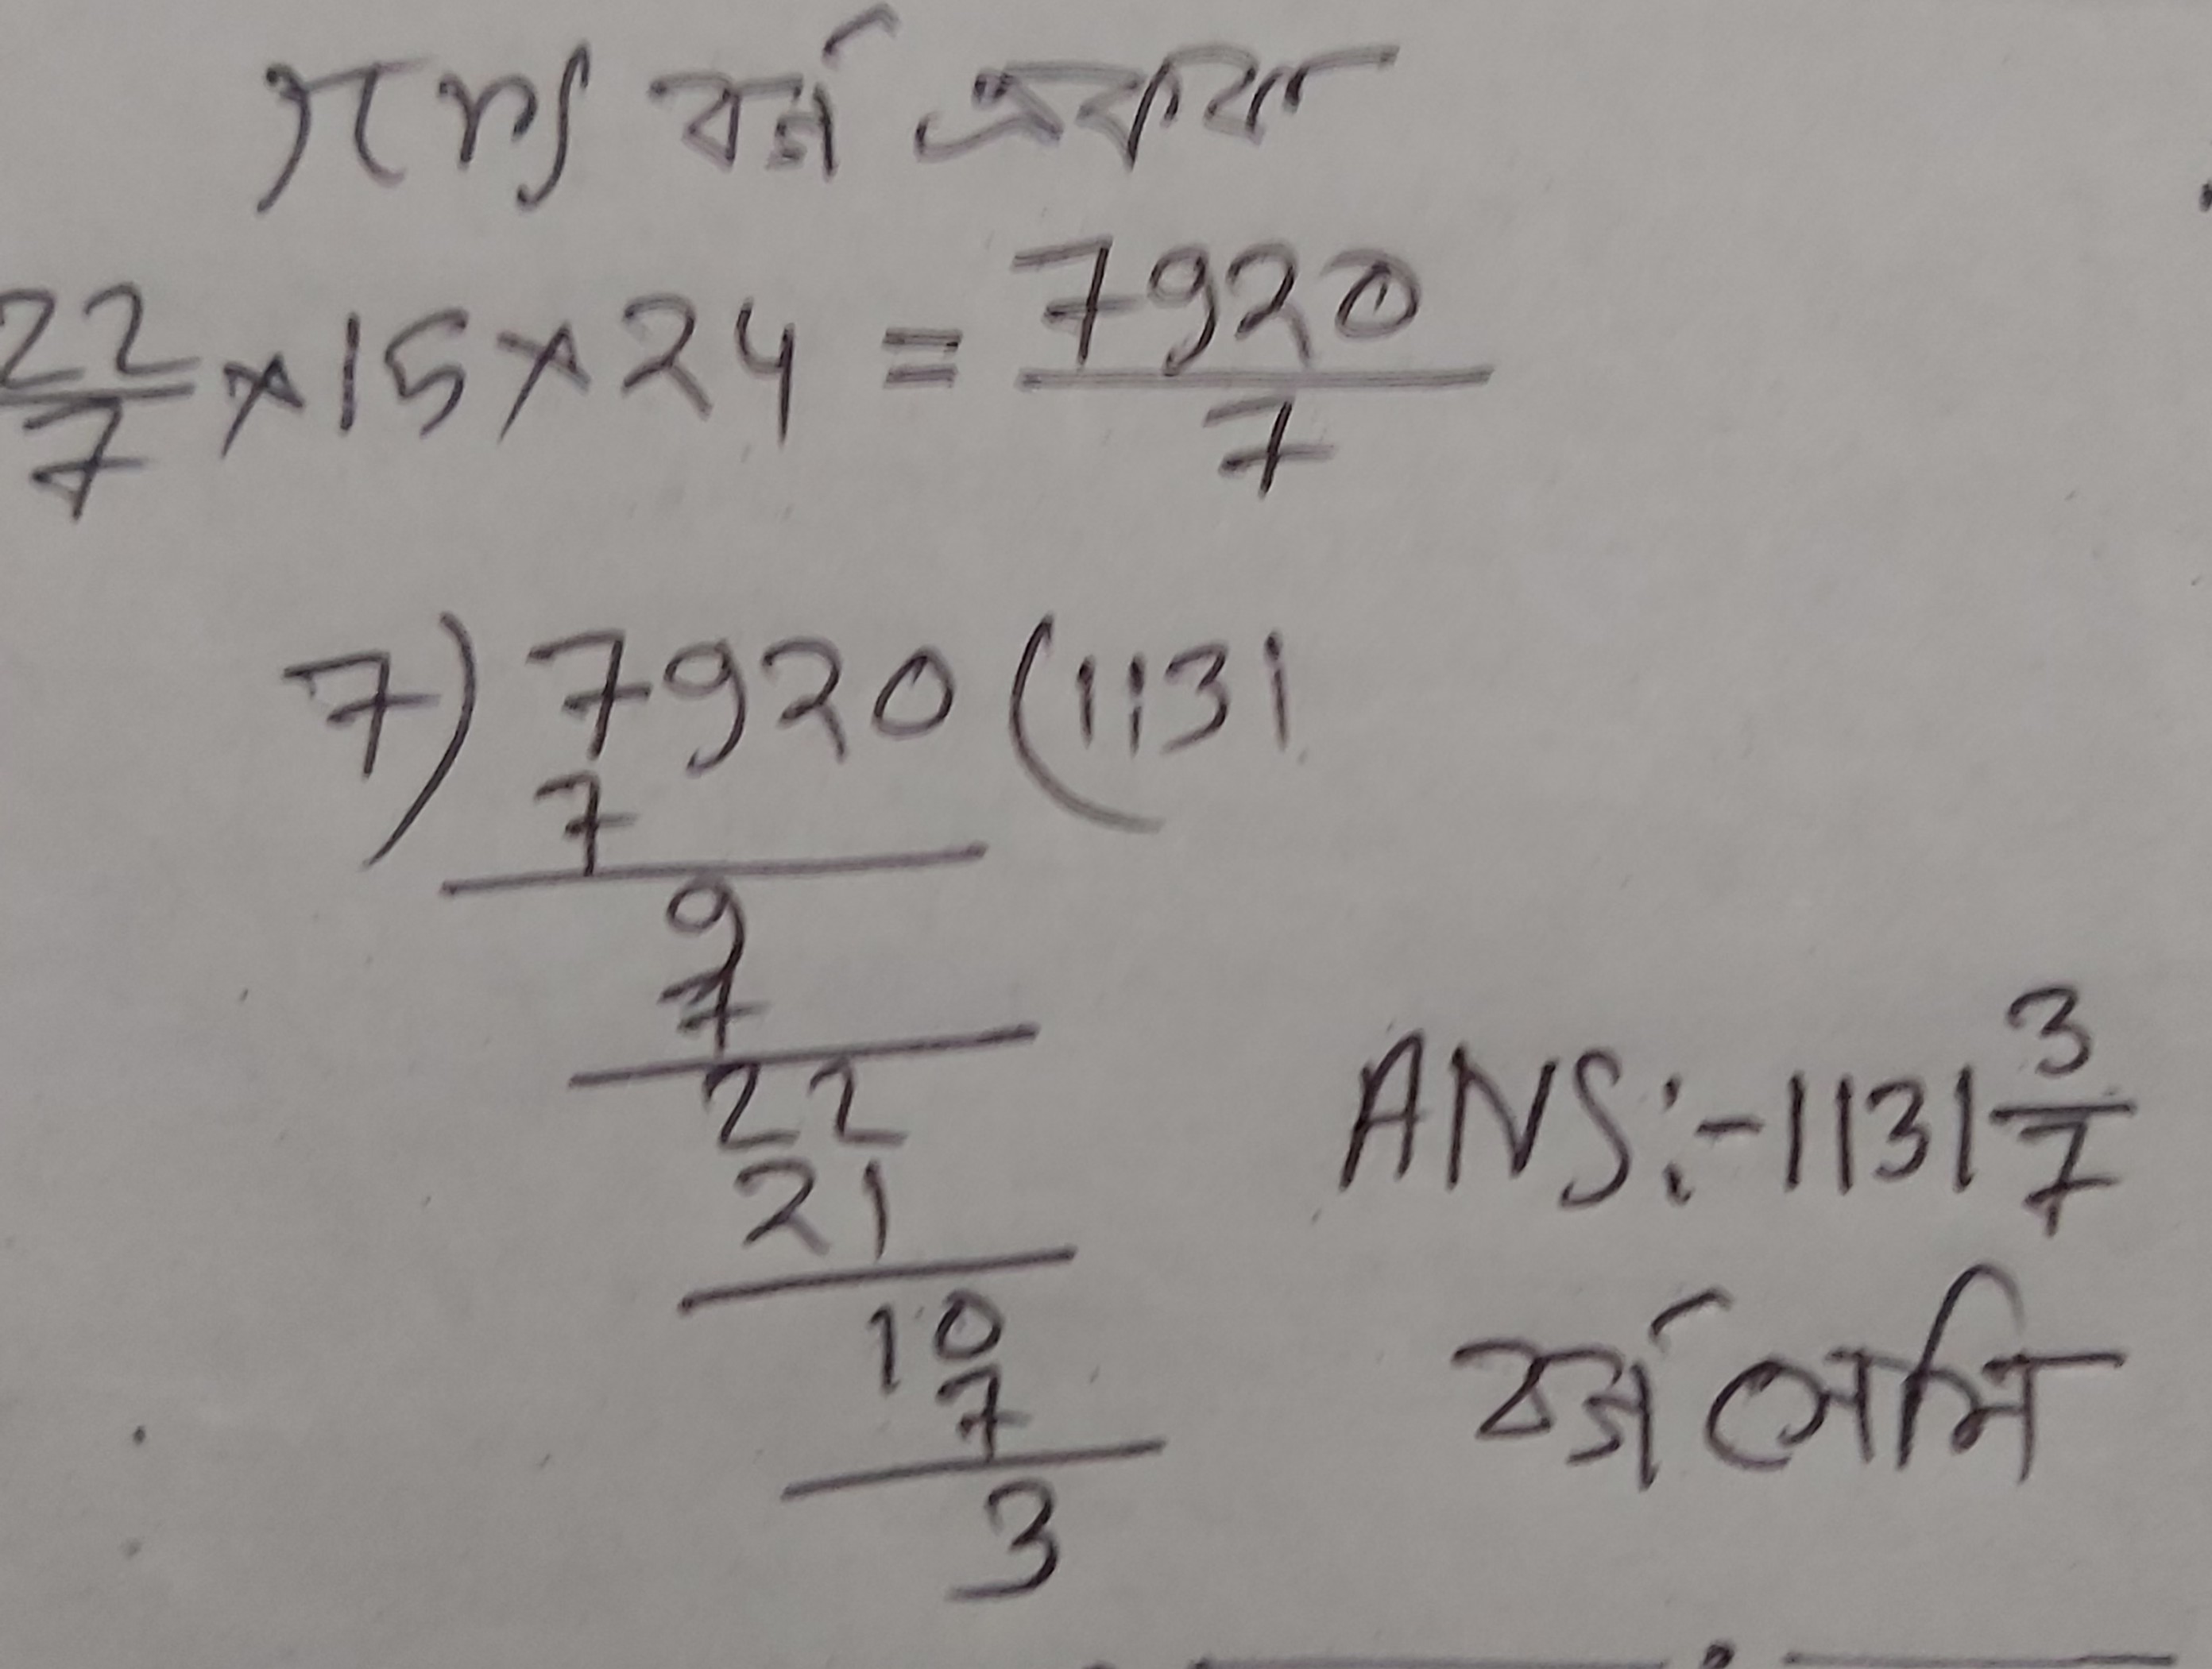 πrs বর্গ একক
22/7 × 15 × 24 = 7920/7
7) 7920 (1131
7
9
7
22
21
10
7
3
ANS:- 1131 3/7
বর্গ সেমি